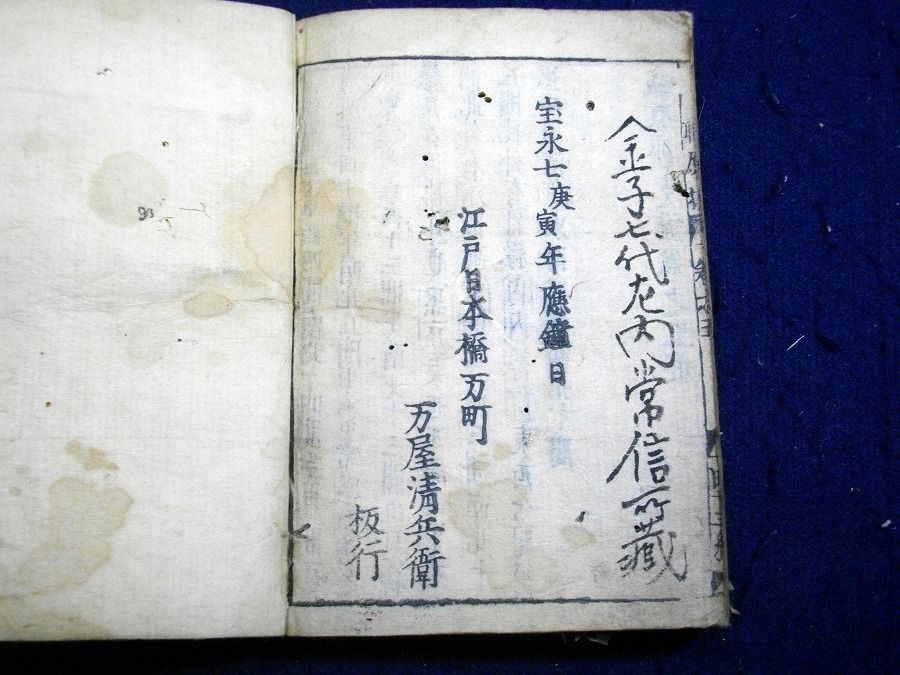 金子七代左内常信所藏
宝永七庚寅年應鐘日
江戸日本橋万町
万屋清兵衛
板行